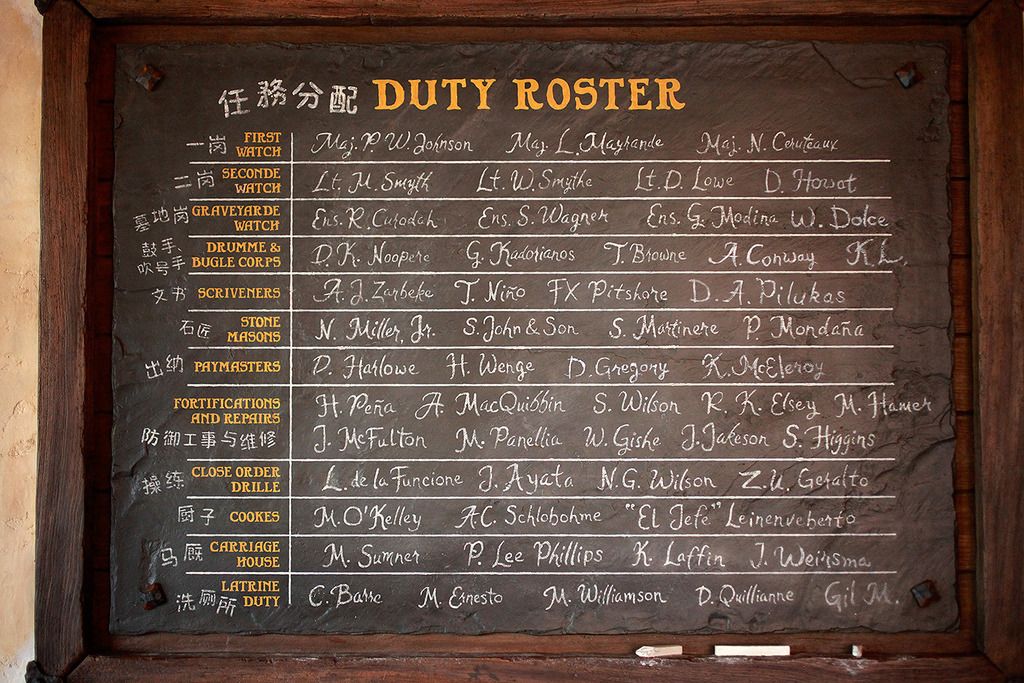 任務分配 DUTY ROSTER
一岗 FIRST WATCH Maj. P. W. Johnson Maj. L. Mayrande Maj. N. Ceruteaux
二岗 SECONDE WATCH Lt. M. Smyth Lt. W. Smythe Lt. D. Lowe D. Howat
墓地岗 GRAVEYARDE WATCH Ens. R. Curodah Ens. S. Wagner Ens. G. Modina W. Dolce
鼓手、吹号手 DRUMME & BUGLE CORPS D. K. Noopere G. Kadorianos T. Browne A. Conway K.L.
文书 SCRIVENERS A. J. Zarbeke T. Niño FX Pitshore D. A. Pilukas
石匠 STONE MASONS N. Miller, Jr. S. John & Son S. Martinere P. Mondaña
出纳 PAYMASTERS D. Harlowe H. Wenge D. Gregory K. McEleroy
FORTIFICATIONS AND REPAIRS H. Peña A. MacQuibbin S. Wilson R. K. Elsey M. Hamer
防御工事与维修 J. McFulton M. Panellia W. Gishe J. Jakeson S. Higgins
操练 CLOSE ORDER DRILLE L. de la Funcione J. Ayata N.G. Wilson Z.U. Geralto
厨子 COOKES M. O'Kelley A.C. Schlobohme "El Jefe" Leinenveberto
马厩 CARRIAGE HOUSE M. Sumner P. Lee Phillips K. Laffin J. Weirsma
洗厕所 LATRINE DUTY C. Barre M. Ernesto M. Williamson D. Quillianne Gil M.